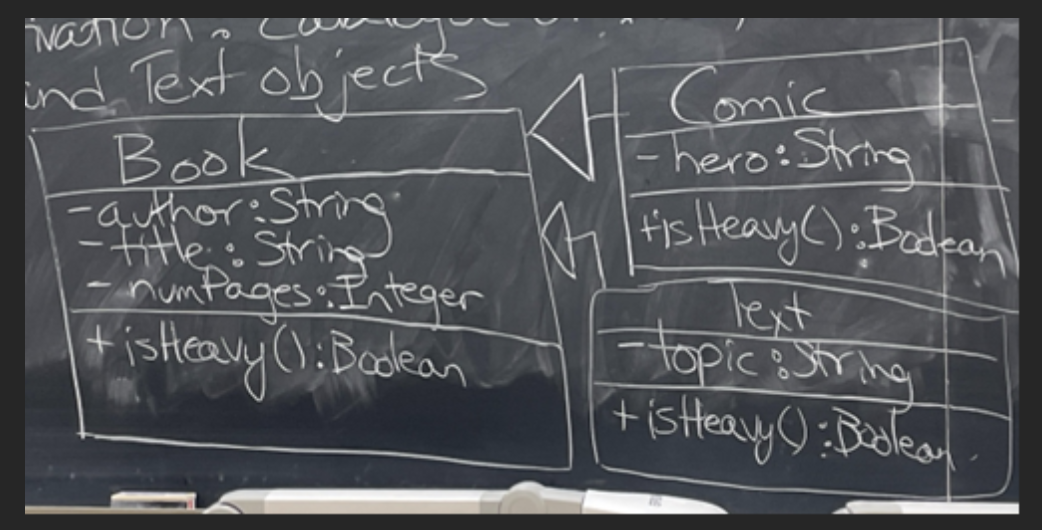 ivation: Catalogue of
and Text objects
Book
-author:String
-title:String
-numPages:Integer
+isHeavy():Boolean
Comic
-hero:String
+isHeavy():Boolean
Text
-topic:String
+isHeavy():Boolean